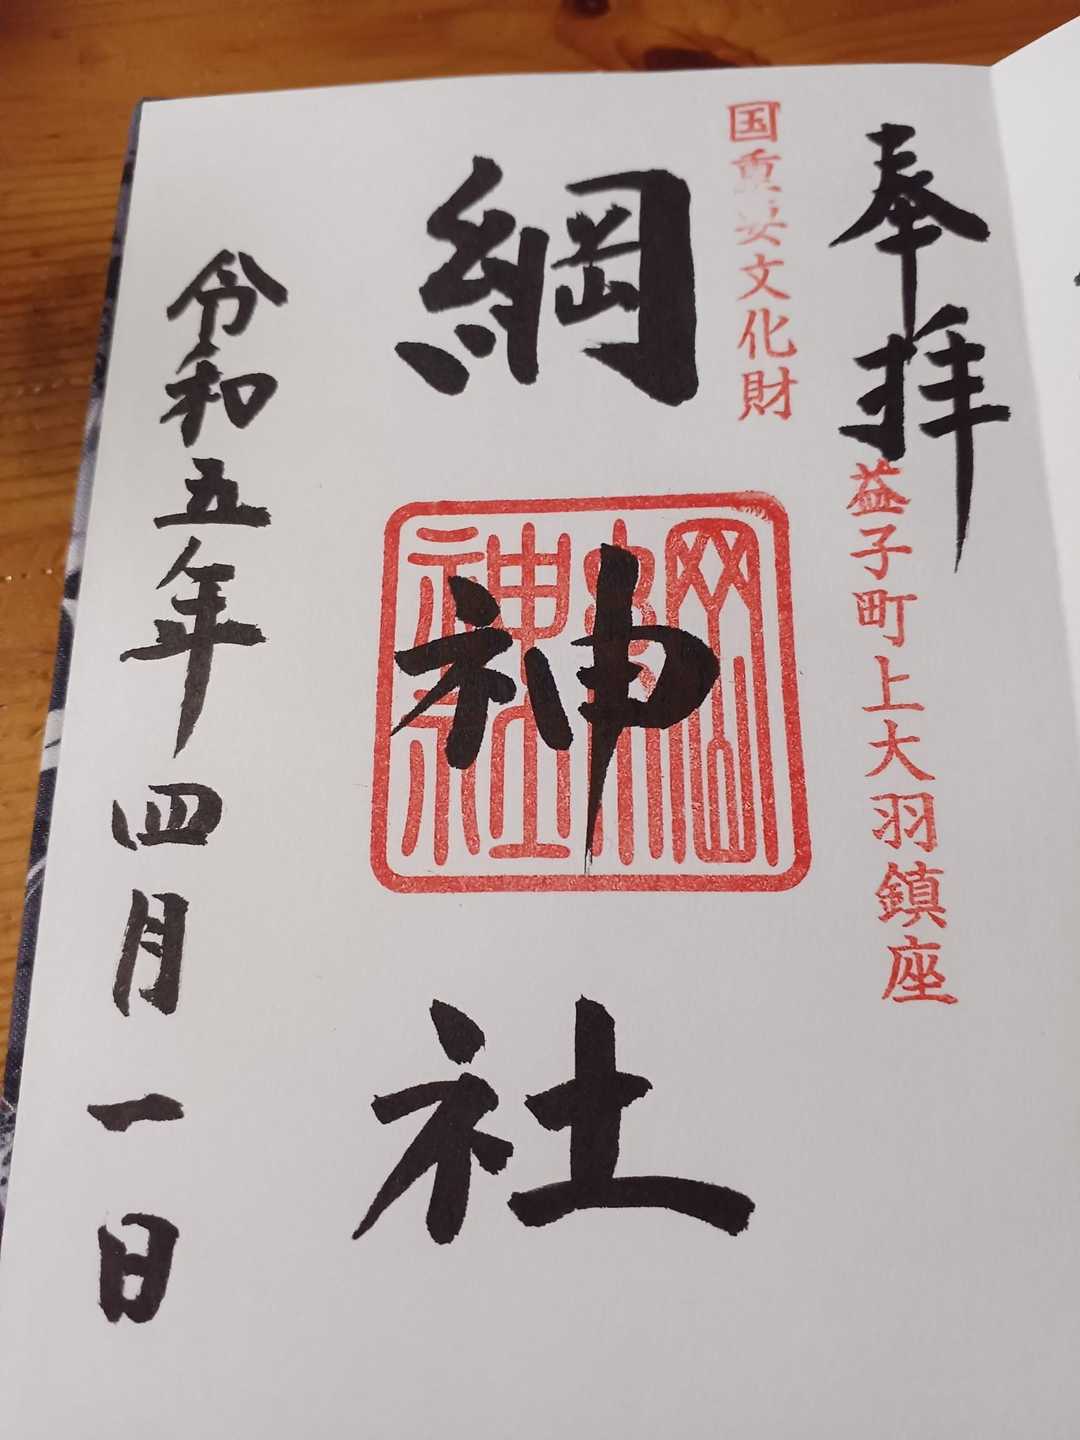 奉拝
益子町上大羽鎮座
国重要文化財
綱神社
綱神社
令和五年四月一日